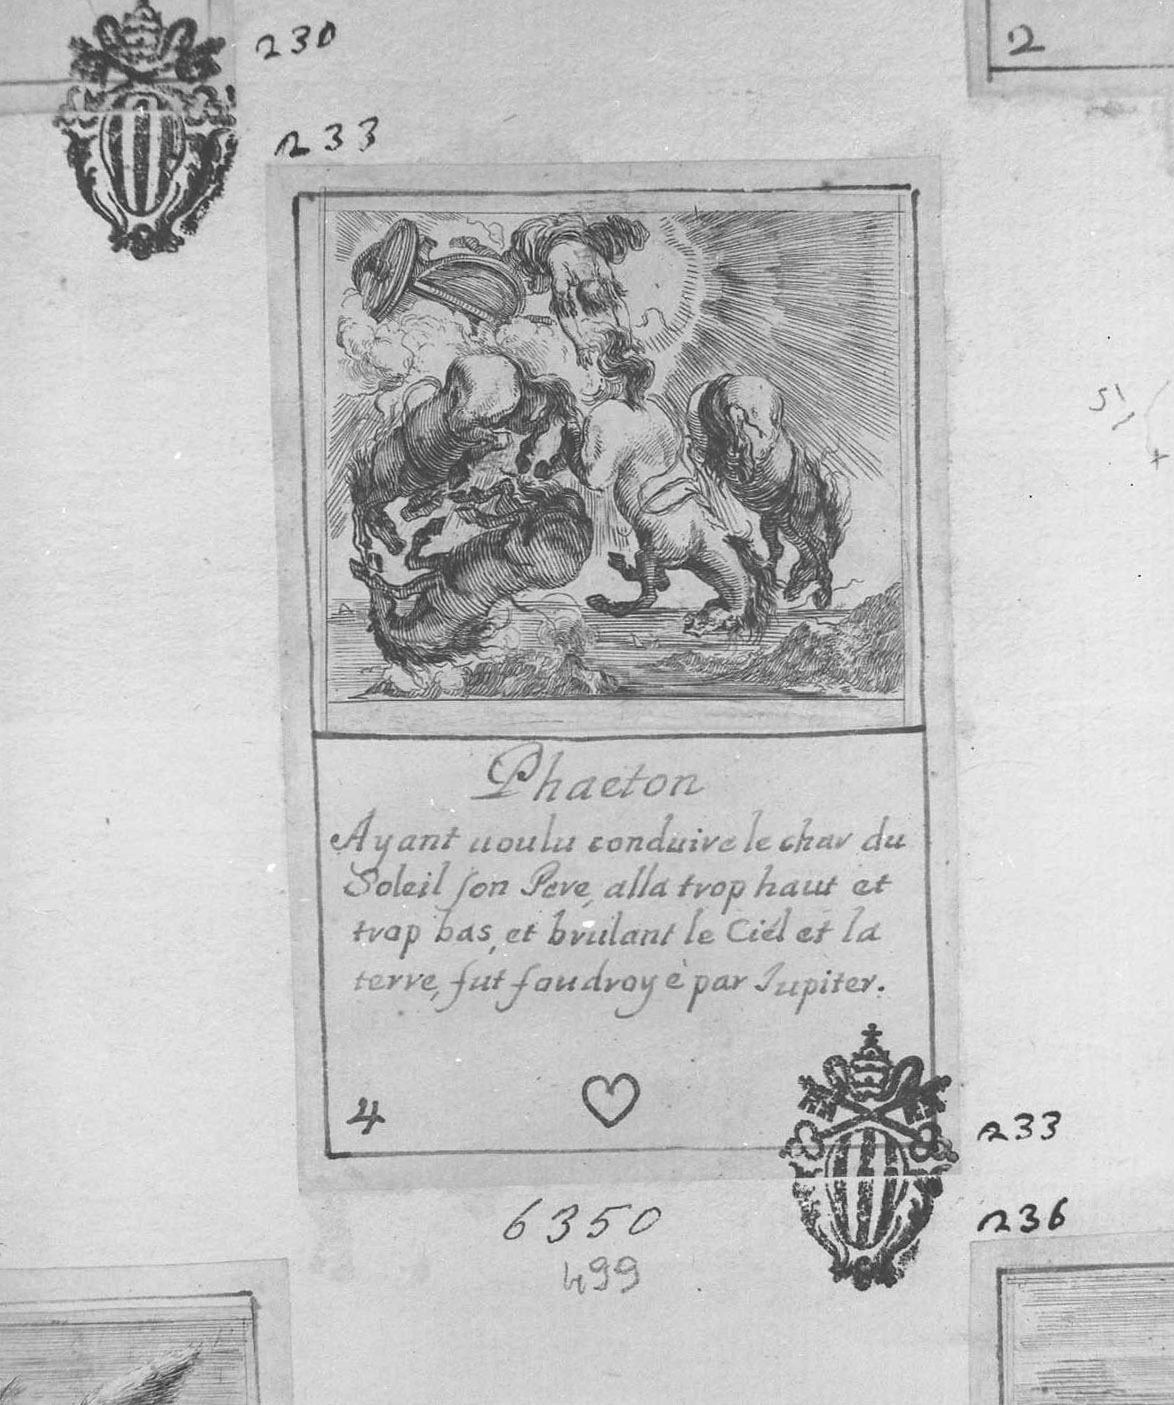 230
2
233
Phaeton
Ayant uoulu conduire le char du
Soleil son Pere, alla trop haut et
trop bas, et brulant le Ciel et la
terre, fut foudroyè par Jupiter.
4
233
6350
236
499